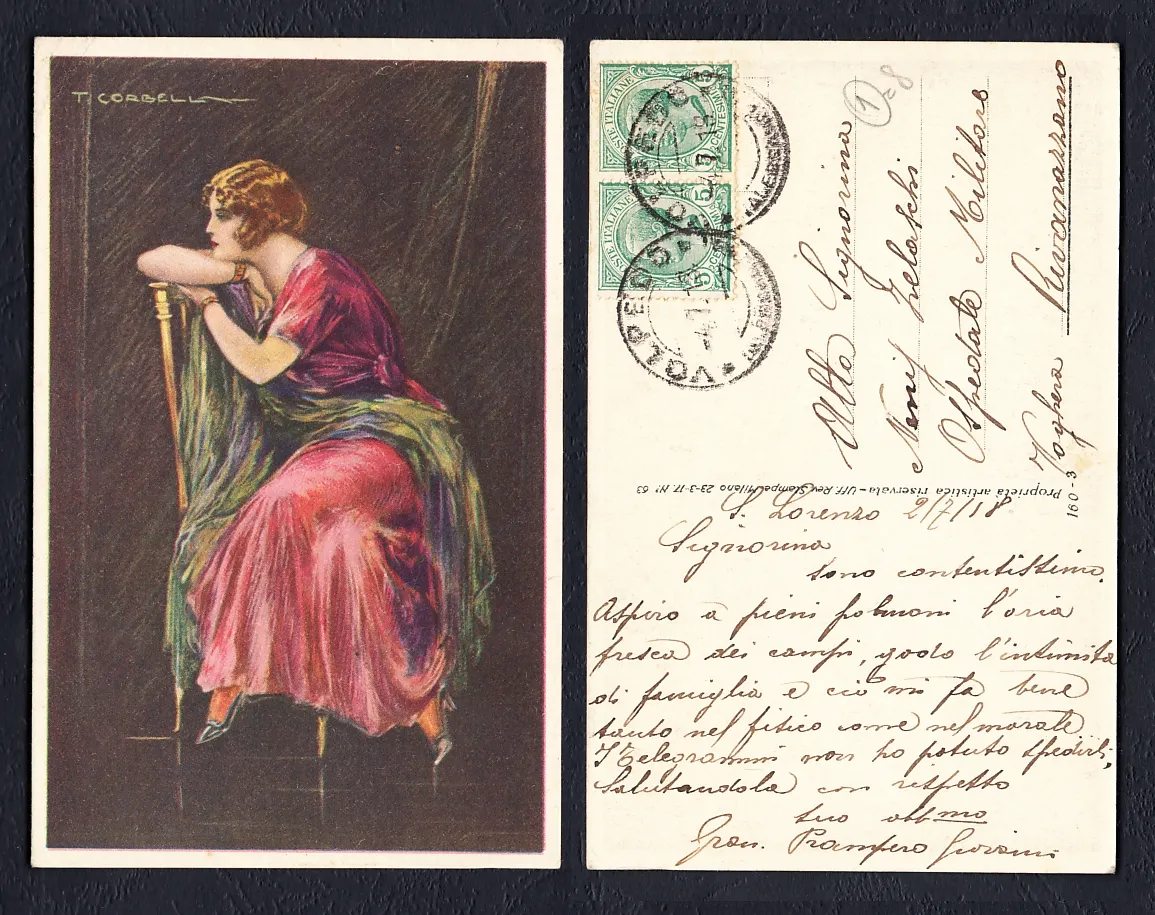 T. CORBELLA
STE ITALIANE
5 CENTESIMI
STE ITALIANE
5 CENT
VOLPEDO
VOLPEDO
1=8
Alla Signorina
Ospedale Militare
Voghera Rivanazzano
Proprietà artistica riservata - Uff. Rev. Stampe Milano 23-3-17. N° 63
160-3
S. Lorenzo 2/7/18
Signorina
sono contentissimo.
Aspiro a pieni polmoni l'aria
fresca dei campi, godo l'intimità
di famiglia e ciò mi fa bene
tanto nel fisico come nel morale
I Telegrammi non ho potuto spedirli,
Salutandola con rispetto
suo obb mo
Prampero Giovanni